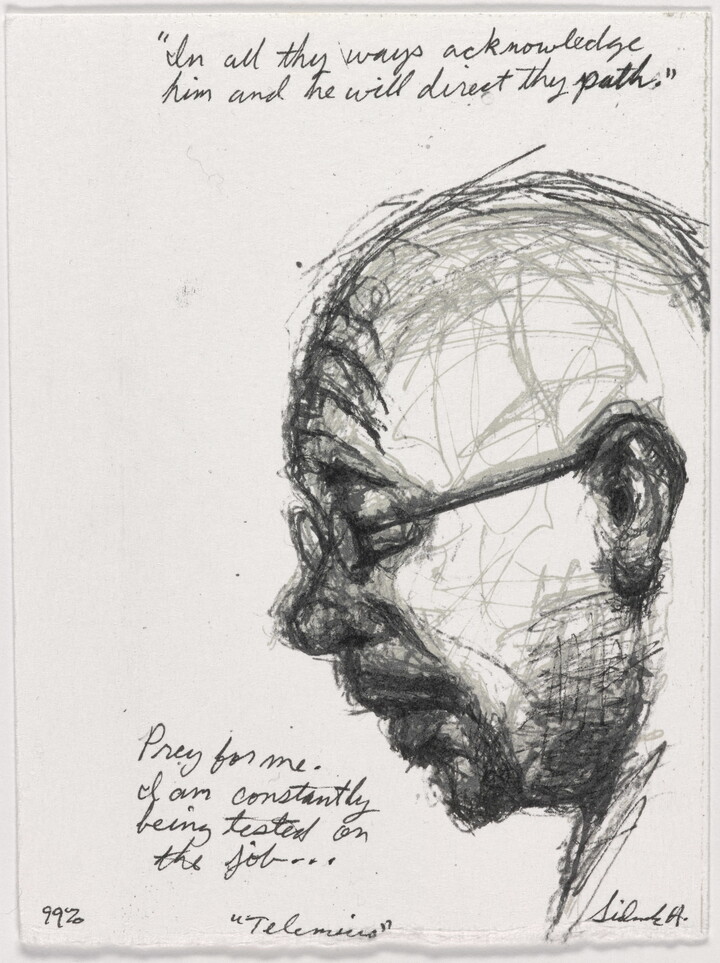 "In all thy ways acknowledge
him and he will direct thy path."
Prey for me.
I am constantly
being tested on
the job...